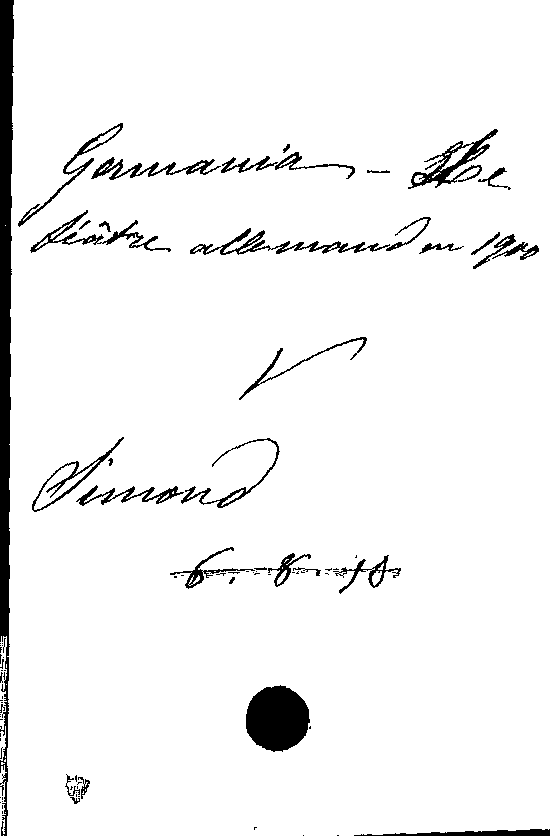 Germania - Le
téâtre allemand en 1900
V
Simond
6. 8. 18